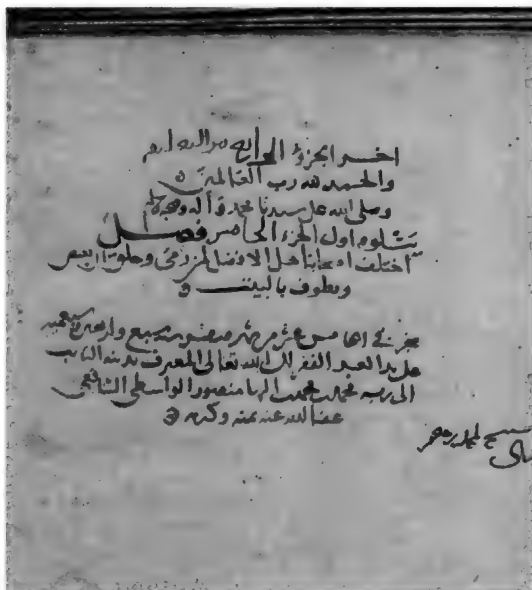 اخر الجزؤ الرابع من
والحمد لله رب العالمين
وصلى الله على سيدنا محمد و اله وصحبه
يتلوه اول الجزء الخامس فصل
اختلف اصحابنا هل الافضل
ويطوف بالبيت
الخامس عشر من شهر صفر سنه سبع واربعين وسبعميه
على يد العبد الفقير الى الله تعالى المعترف بذنبه التايب
الى ربه محمد بن محمد منصور الواسطى الشافعي
عفا الله عنه بمنه وكرمه